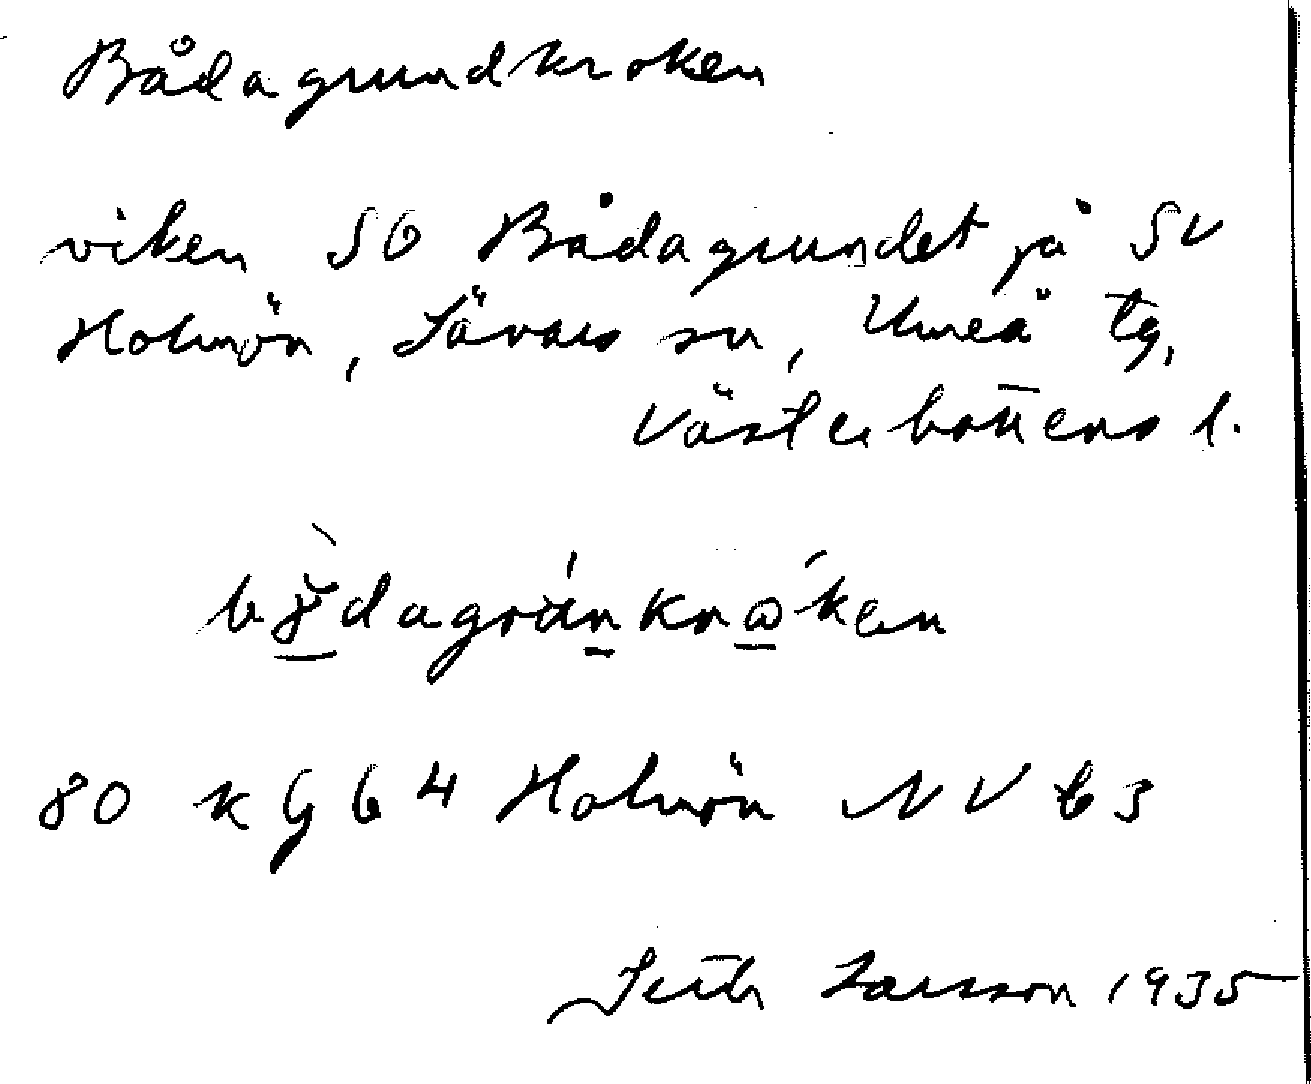 Bådagrundkroken
viken SO Bådagrundet på SV
Holmön, Sävars sn, Umeå tg,
Västerbottens l.
80 k G 6 4 Holmön NV b 3
Seth Larsson 1935